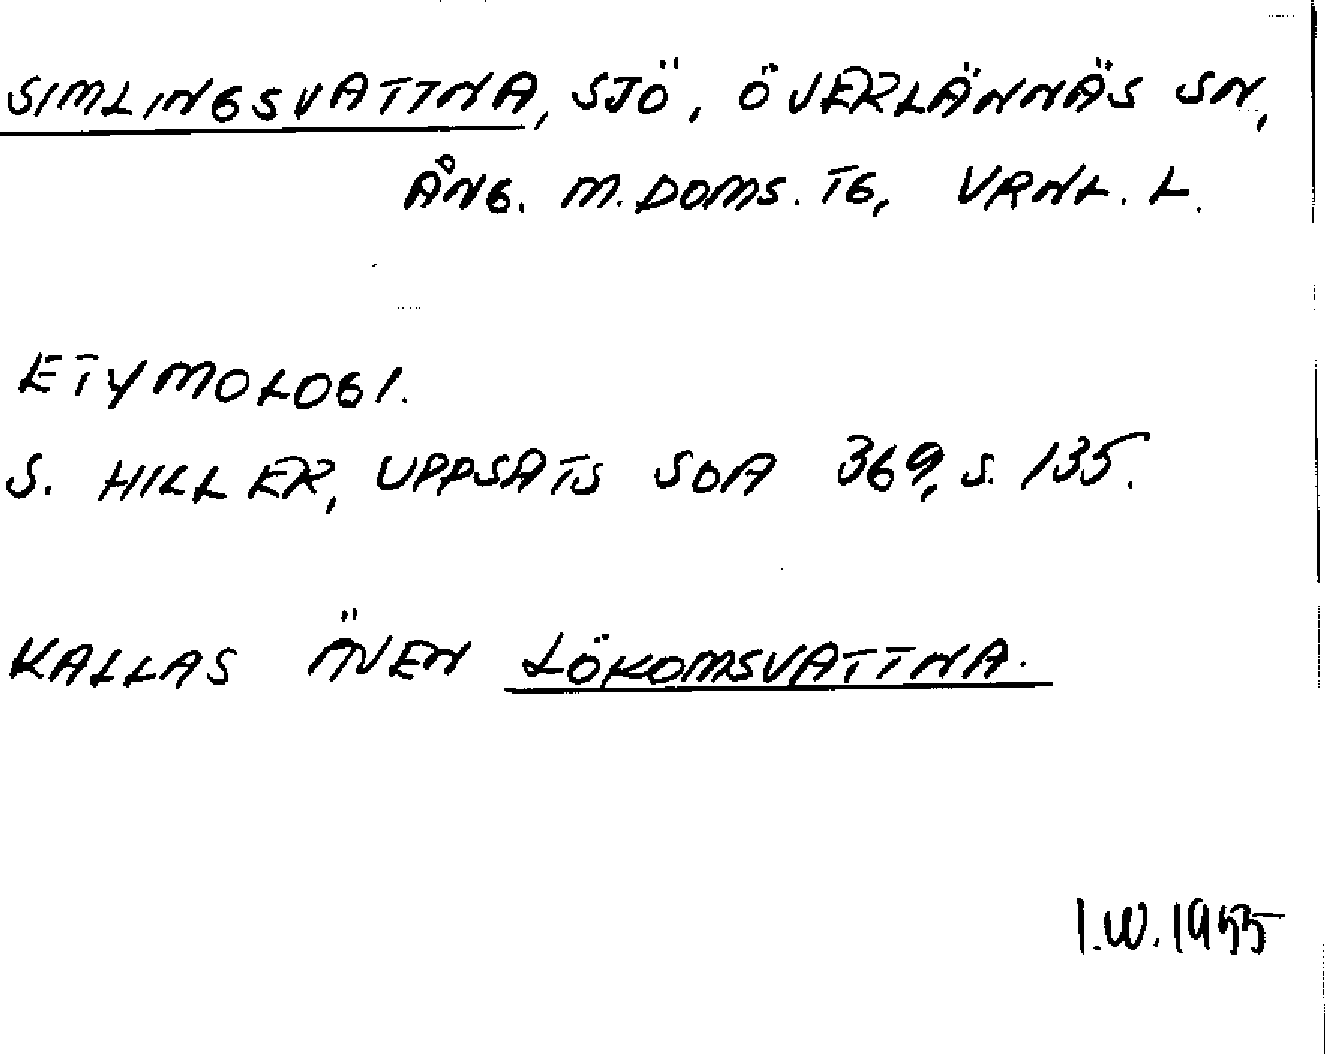 SIMLINGSVATTNA, SJÖ, ÖVERLÄNNÄS SN,
ÅNG. M. DOMS. TG, VRNL. L.
ETYMOLOGI.
S. HILLER, UPPSATS SOA 369, S. 135.
KALLAS ÄVEN LÖKOMSVATTNA.
I.W. 1955